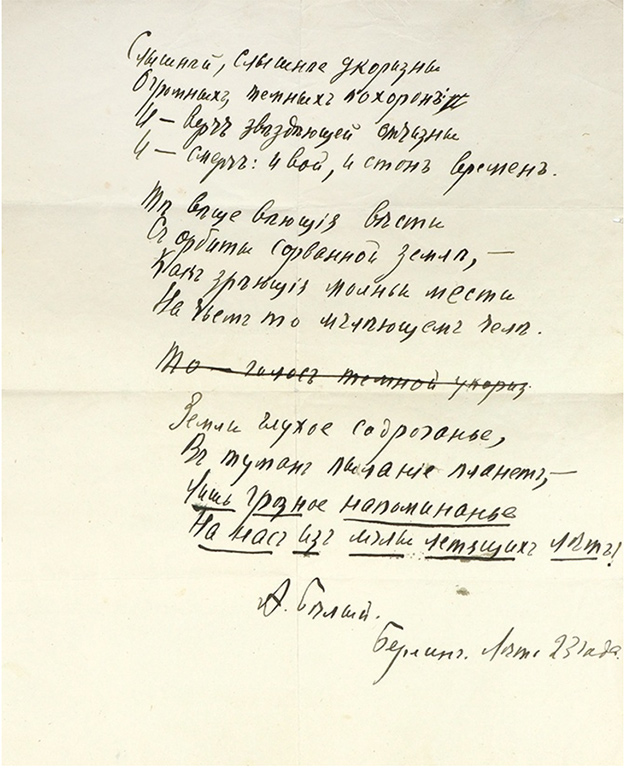 Слышней, слышнее укоризны
Огромныхъ, темныхъ похоронъ
И — звѣздѣющей отчизны
И — смерчъ: и вой, и стонъ временъ.
вѣющія вѣсти
Съ орбиты сорванной земли, —
Какъ зрѣющія молньи мести
На чьемъ то челѣ.
То — голосъ темной укориз
Земли глухое содроганье,
Въ туманѣ пыланіе планетъ, —
Лишь грозное напоминанье
На насъ изъ мглы летящихъ лѣтъ!
А. Бѣлый.
Берлинъ. Лѣто 23 года.